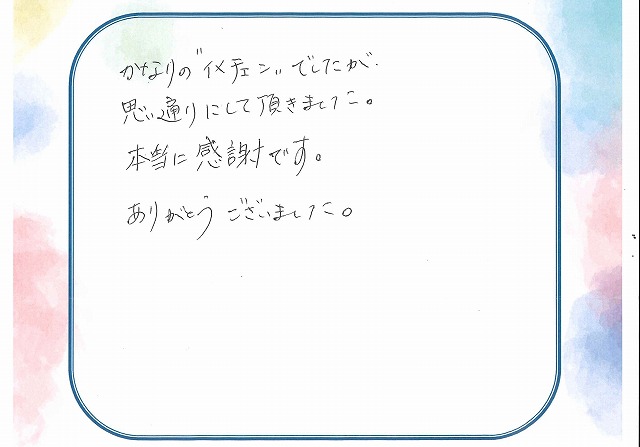 かなりの"イメチェン"でしたが、
思い通りにして頂きました。
本当に感謝です。
ありがとうございました。